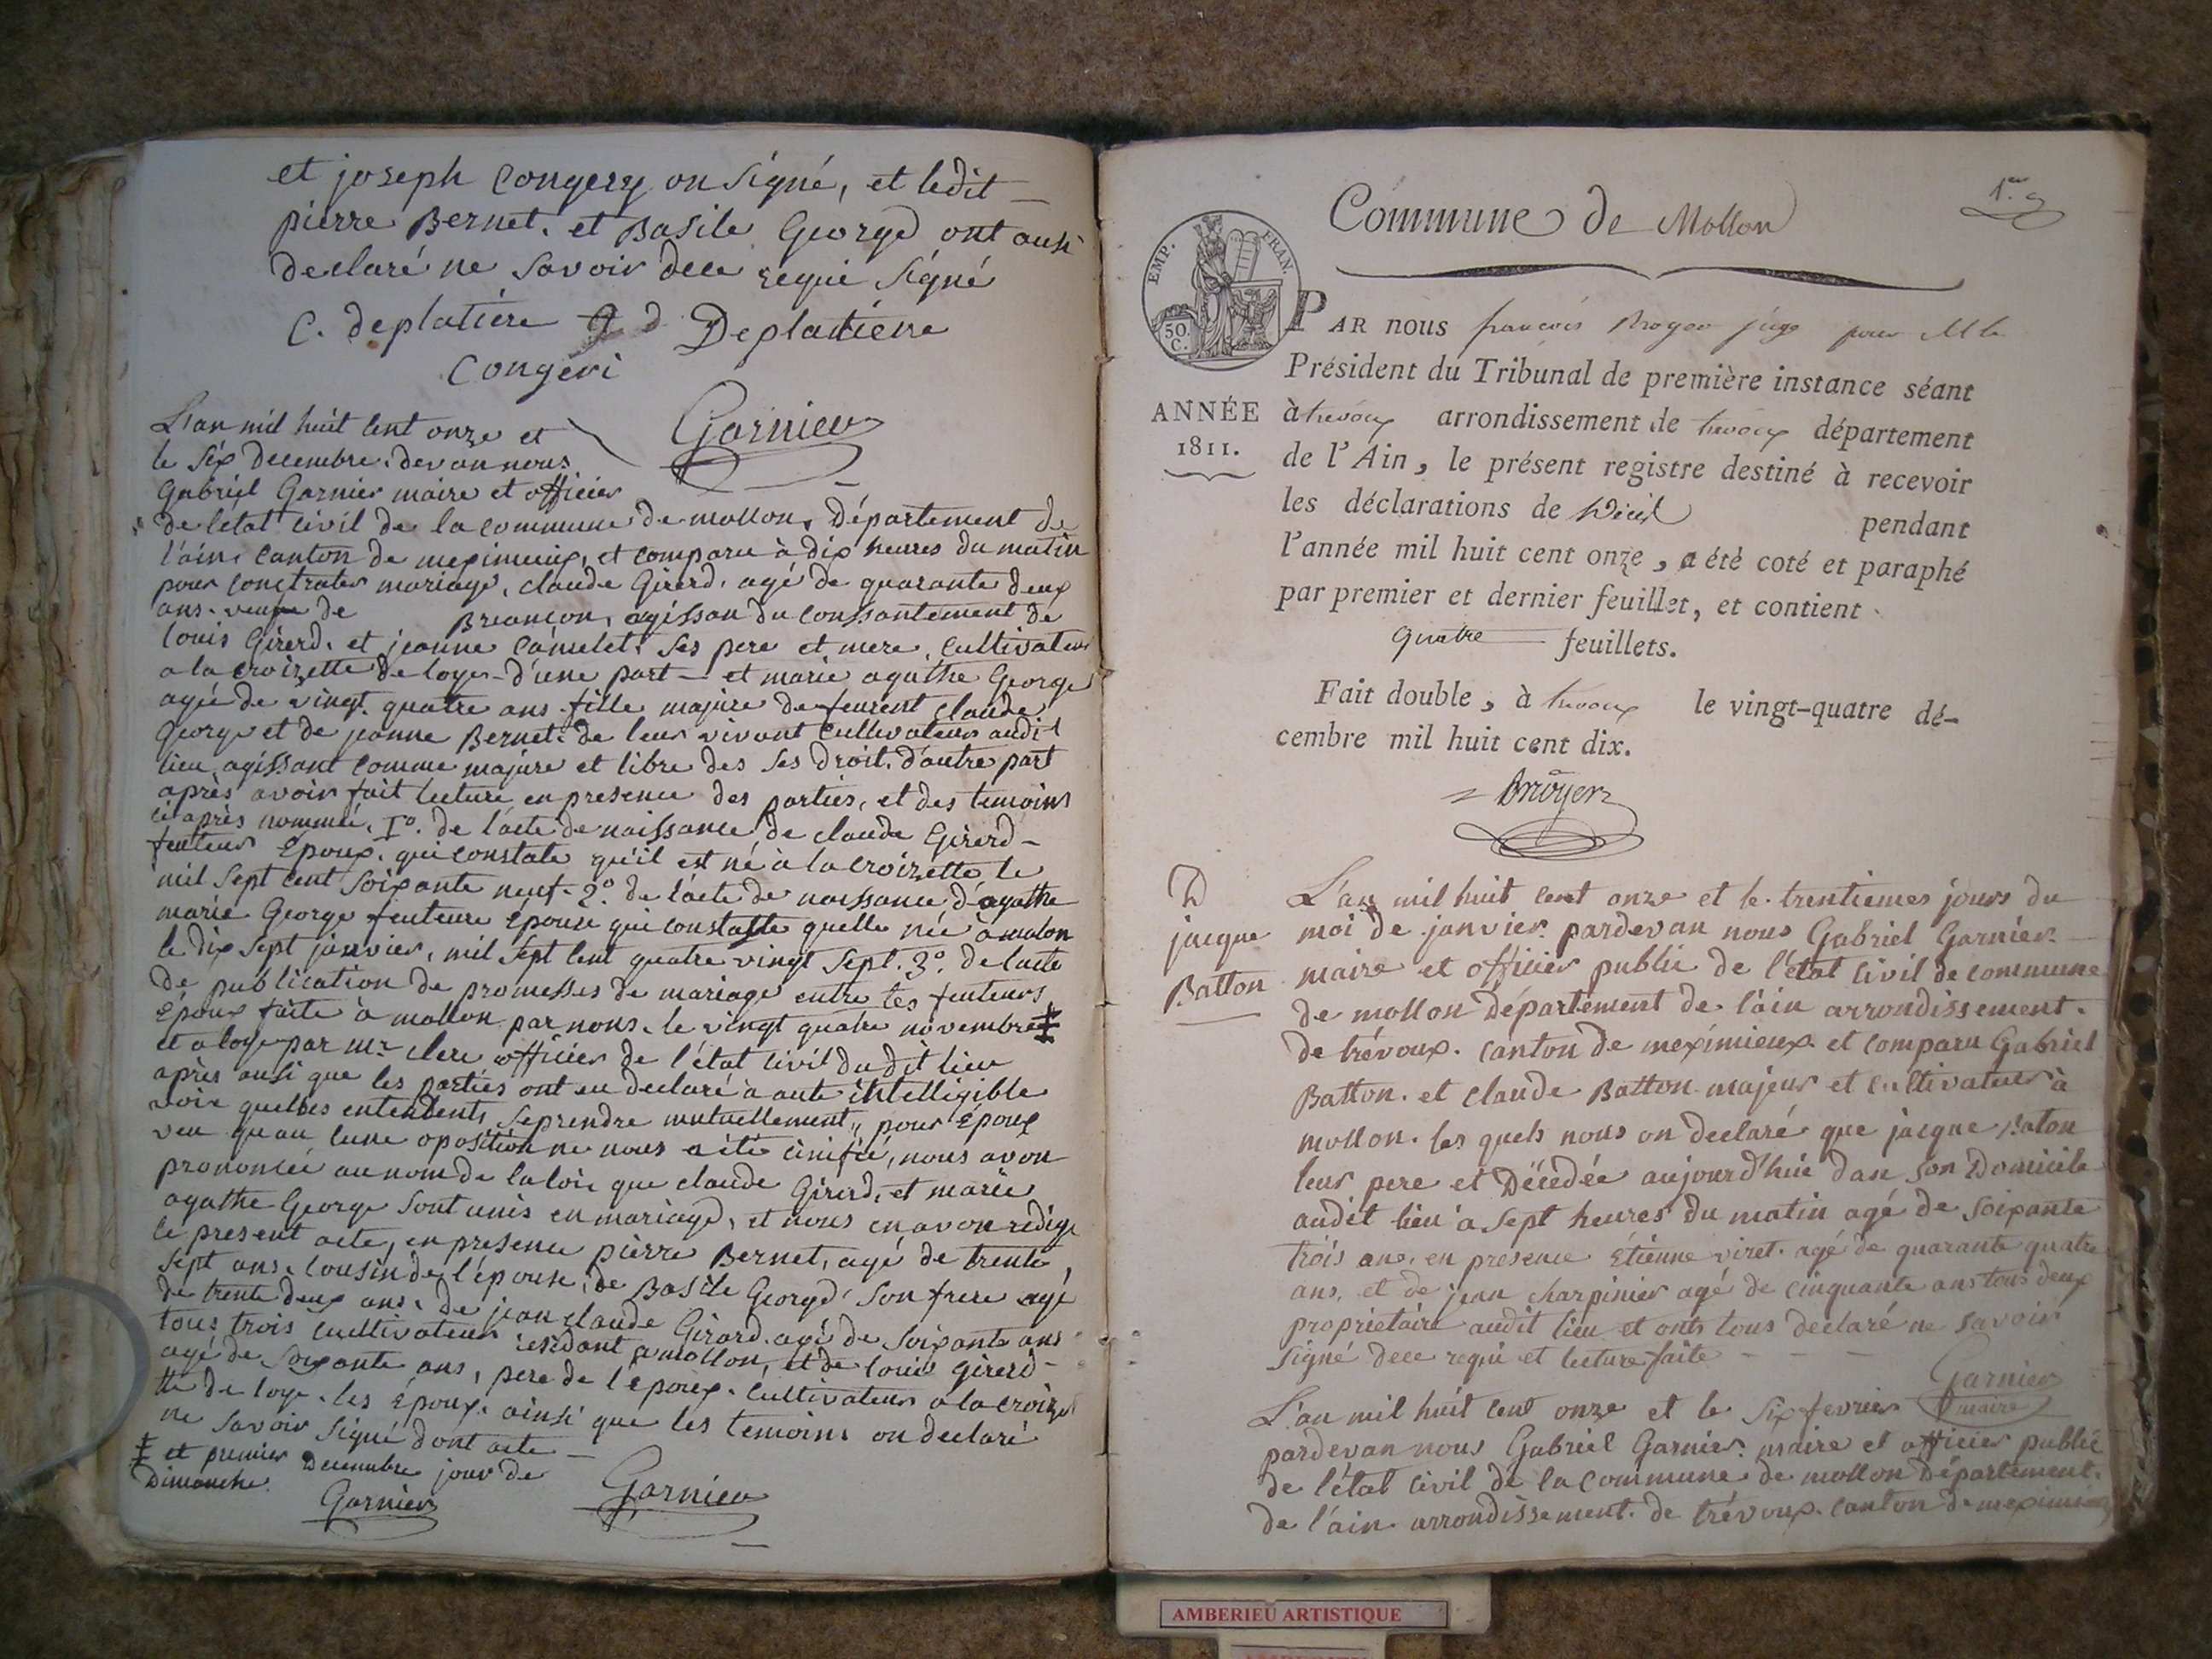 et joseph Congery on signé, et ledit
pierre Bernet. et Basile George ont ausi
declaré ne Savoir dece requi Signé
C. deplatiére d Deplatiére
Congeri
Garnier
L'an mil huit Cent onze et
le Six Decembre. devan nous
Gabriel Garnier maire et officier
de l'état civil de la commune de mollon, Département de
l'ain. canton de meximieux, et comparu à dix heures du matin
pour conctrater mariage, claude Girerd. agé de quarante deux
ans. veufve de Briancon, agissan du conssantement de
louis Girerd. et jeanne Camelet. ses pere et mere, cultivateur
a la croizette de loyes - d'une part - et marie agathe George
agée de vingt quatre ans. fille majure de feurent claude
George et de jeanne Bernet. de leur vivant Cultivateur audit
lieu, agissant comme majure et libre des ses droit. d'autre part
après avoir fait lecture en presence des parties, et des temoins
ci après nommée, 1º. de l'acte de naissance de claude Girerd -
feuteur Epoux. qui constate qu'il est né à la croizette le
mil Sept Cent Soixante neuf - 2º. de l'acte de naissance d'agathe
marie George feuteure épouse qui constatte quelle née à molon
le dix Sept janvier, mil Sept Cent quatre vingt Sept. 3º. de l'acte
de publication de promesses de mariage entre les feuteurs
Epoux faite à mollon par nous. le vingt quatre novembre ‡
et a loye par mr. clerc officier de l'état civil dudit lieu
après ausi que les parties ont eu declaré à aute intelligible
voix quelles entendents Seprendre mutuellement, pour Epoux
veu quau cune oposition ne nous a été cinifié, nous avon
prononcée au nom de la loix que claude Girerd, et marie
agathe George Sont unis en mariage, et nous en avon redigé
le present acte, en presence pierre Bernet, agé de trente
Sept ans. Cousin de l'épouse, de Basile George Son frere agé
de trente deux ans, de jean claude Girard. agé de Soixante ans
tous trois cultivateur residant a mollon, et de louis Girerd -
agé de Soixante ans, pere de l'époux. cultivateur a la croize
tte de loye. les Epoux. ainsi que les temoins on declaré
ne savoir signé dont acte -
‡ et premier Decembre jour de
Dimanche.
Garnier Garnier
1er
Commune de Mollon
EMP. FRAN.
50. C.
ANNÉE
1811.
PAR nous francois Broyer juge pour Mr le
Président du Tribunal de première instance séant
à trevoux arrondissement de trevoux département
de l'Ain, le présent registre destiné à recevoir
les déclarations de Décès pendant
l'année mil huit cent onze, a été coté et paraphé
par premier et dernier feuillet, et contient
quatre feuillets.
Fait double, à trevoux le vingt-quatre dé-
cembre mil huit cent dix.
Broyer
D
jacque
Batton
L'an mil huit cent onze et le trentiemes jours du
moi de janvier. pardevan nous Gabriel Garnier
maire et officier public de l'état civil de commune
de mollon Département de l'ain arrondissement.
de trévoux. canton de meximieux et comparu Gabriel
Batton. et claude Batton majeur et cultivateur à
mollon. les quels nous on declaré que jacque Baton
leur pere et Décedée aujourd'hui dan son Domicile
audit lieu a Sept heures du matin agé de Soixante
trois ans, en presence Etienne viret. agé de quarante quatre
ans, et de jean charpinier agé de cinquante ans tous deux
proprietaire audit lieu et onts tous declaré ne savoir
Signé dece requi et lecture faite - - -
Garnier
maire
L'an mil huit cent onze et le Six fevrier
pardevan nous Gabriel Garnier. maire et officier public
de l'état civil de la commune de mollon Département.
de l'ain. arrondissement. de trévoux. canton de meximieu
AMBERIEU ARTISTIQUE